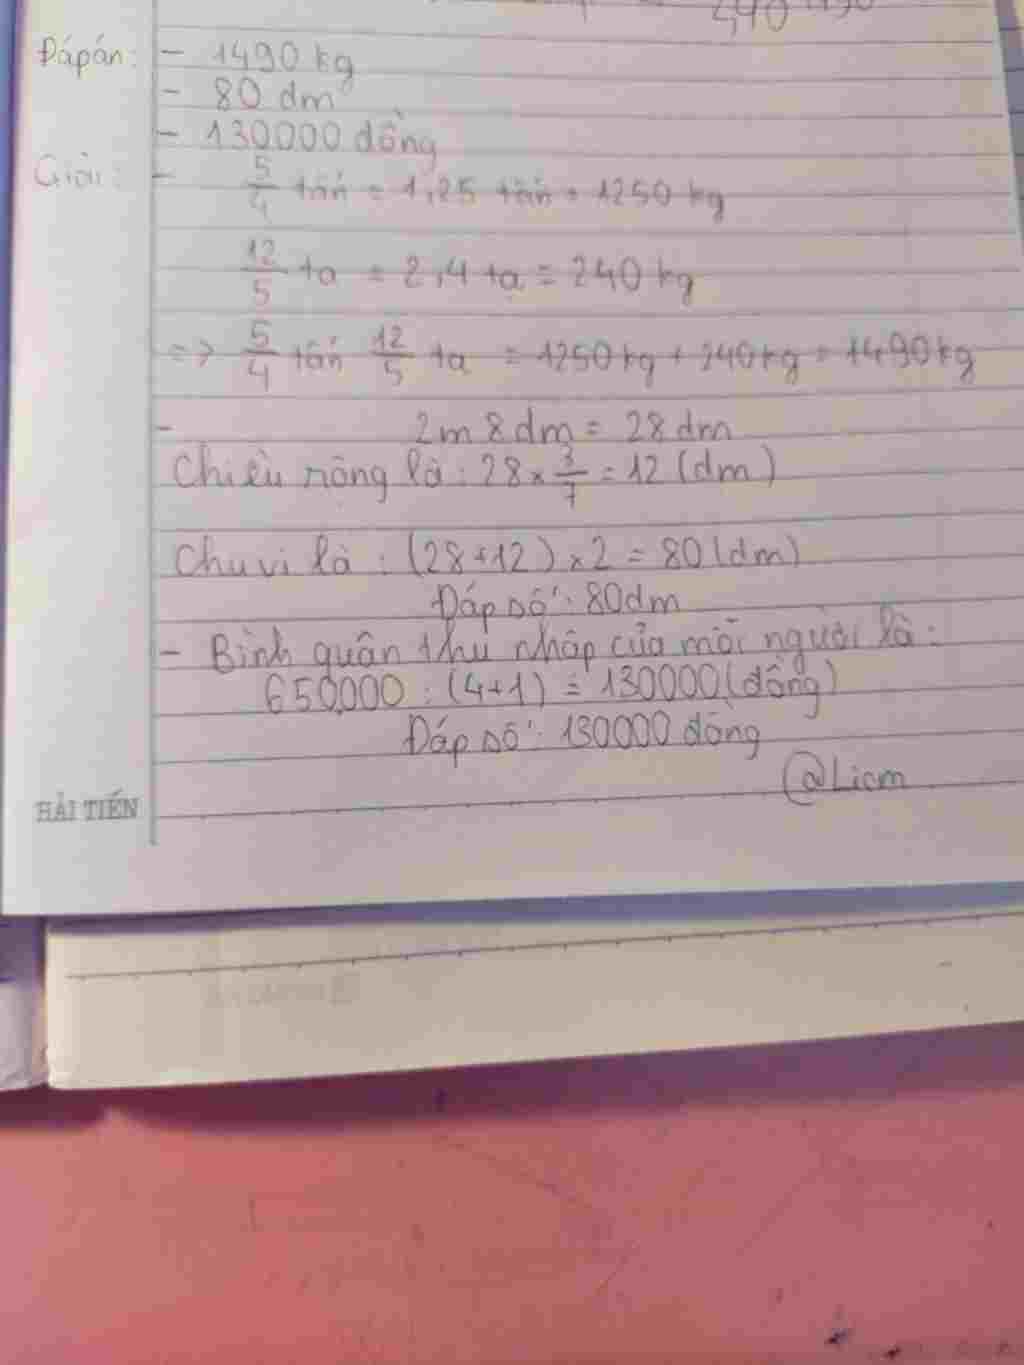 Đáp án: - 1490 kg
- 80 dm
- 130000 đồng
Giải: - 5/4 tấn = 1,25 tấn = 1250 kg
12/5 tạ = 2,4 tạ = 240 kg
=> 5/4 tấn 12/5 tạ = 1250 kg + 240 kg = 1490 kg
- 2m 8dm = 28 dm
Chiều rộng là : 28 × 3/7 = 12 (dm)
Chu vi là : (28+12) × 2 = 80 (dm)
Đáp số : 80dm
- Bình quân thu nhập của mỗi người là :
650000 : (4+1) = 130000 (đồng)
Đáp số : 130000 đồng
@Licm
HẢI TIẾN